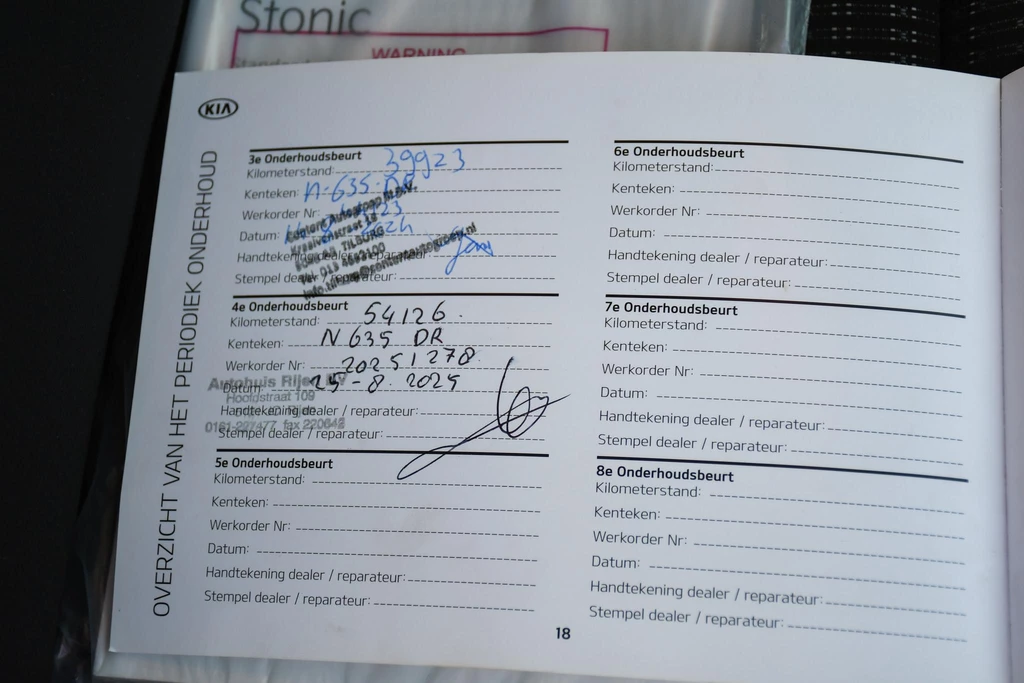 Stonic
WARNING
KIA
OVERZICHT VAN HET PERIODIEK ONDERHOUD
3e Onderhoudsbeurt
Kilometerstand: 39923
Kenteken: N-635-DR
Werkorder Nr:
Datum:
Handtekening dealer / reparateur:
Stempel dealer / reparateur:
Kraaivenstraat
TILBURG
4e Onderhoudsbeurt
Kilometerstand: 54126
Kenteken: N 635 DR
Werkorder Nr: 20251278
Datum: 25-8-2025
Handtekening dealer / reparateur:
Stempel dealer / reparateur:
Autohuis Rijen BV
Hoofdstraat 109
0161-227477 fax 220642
5e Onderhoudsbeurt
Kilometerstand:
Kenteken:
Werkorder Nr:
Datum:
Handtekening dealer / reparateur:
Stempel dealer / reparateur:
6e Onderhoudsbeurt
Kilometerstand:
Kenteken:
Werkorder Nr:
Datum:
Handtekening dealer / reparateur:
Stempel dealer / reparateur:
7e Onderhoudsbeurt
Kilometerstand:
Kenteken:
Werkorder Nr:
Datum:
Handtekening dealer / reparateur:
Stempel dealer / reparateur:
8e Onderhoudsbeurt
Kilometerstand:
Kenteken:
Werkorder Nr:
Datum:
Handtekening dealer / reparateur:
Stempel dealer / reparateur:
18